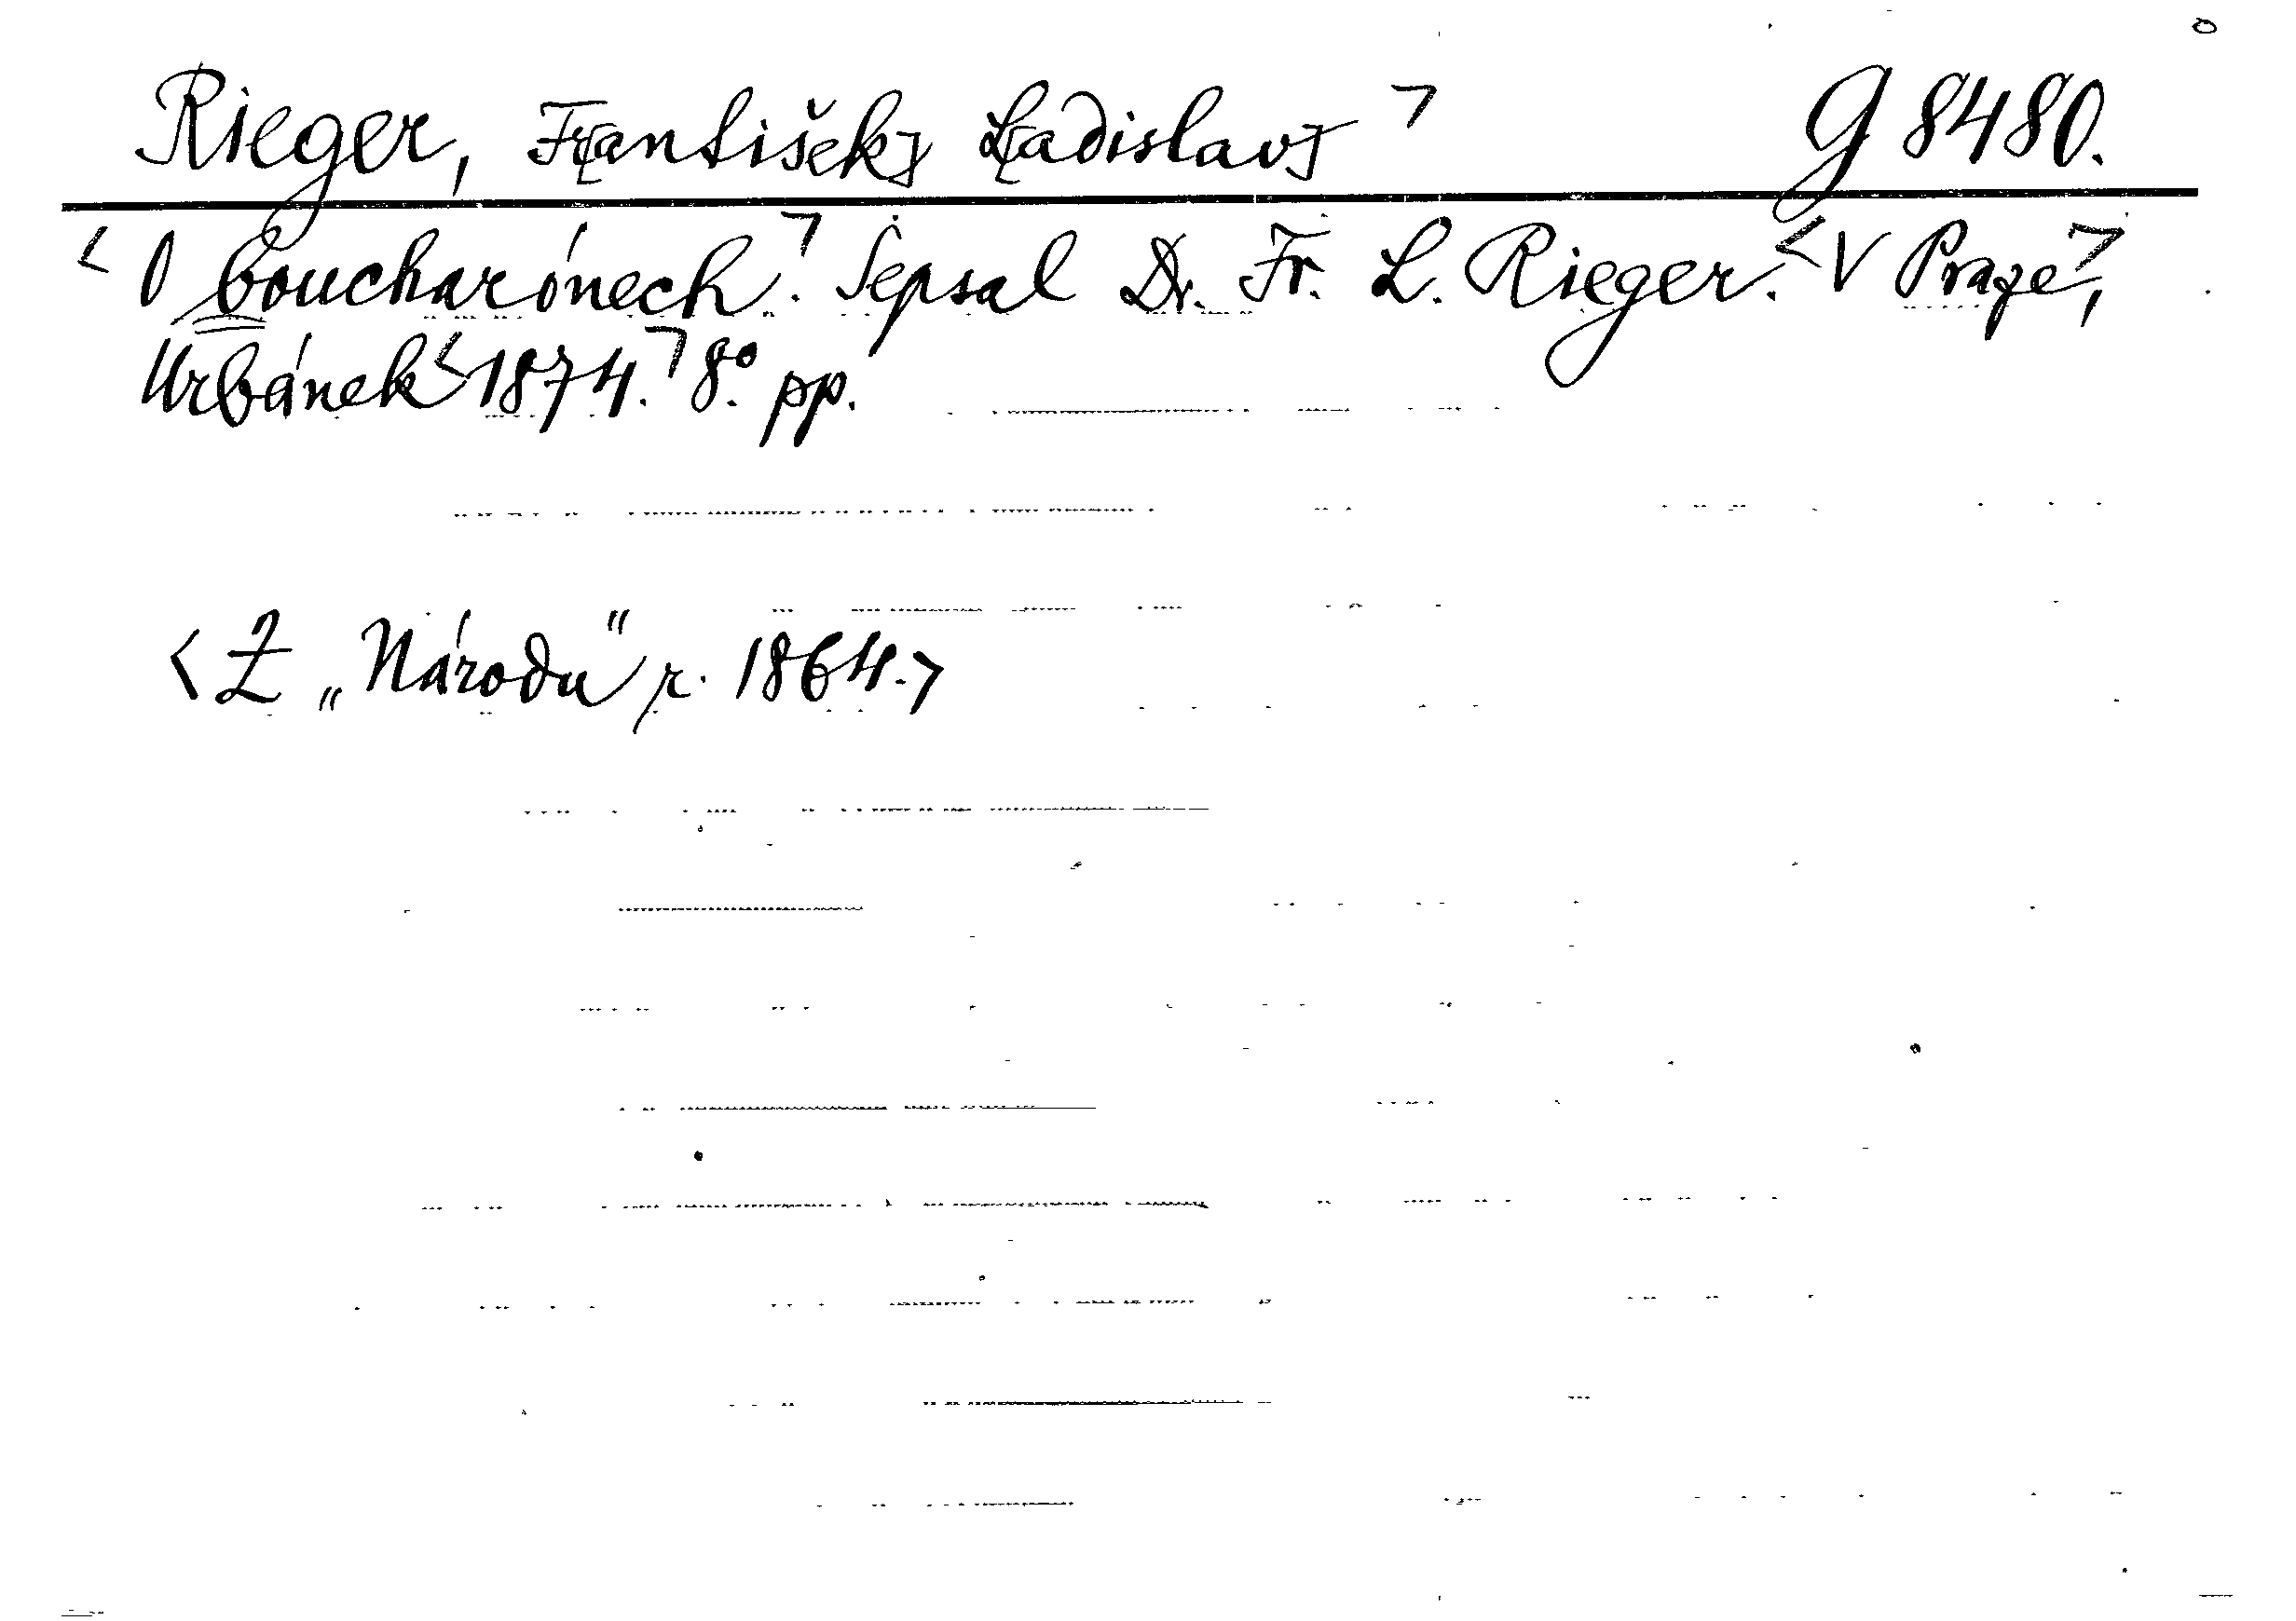 Rieger, Fr[antišek] L[adislav] ⌝ G 8480.
< O boucharónech⌝. Sepsal Dr. Fr. L. Rieger. < V Praze⌝,
Urbánek < 1874.⌝ 8°. pp.
< Z „Národu“ r. 1864. >